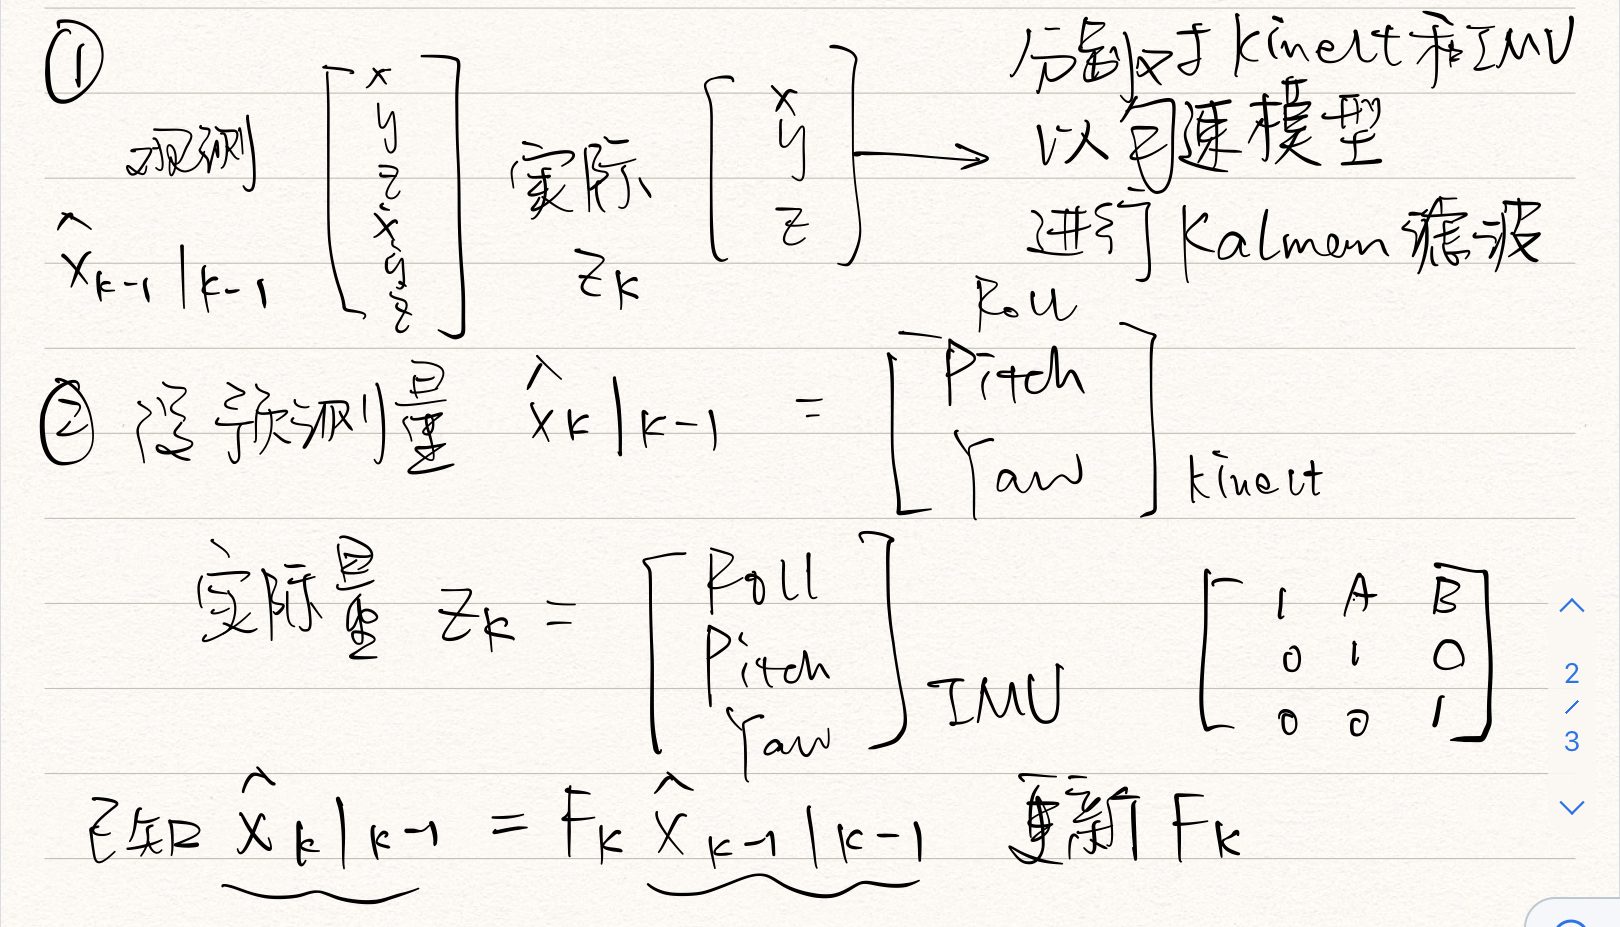 ① 观测 x̂k-1|k-1 [x y z ẋ ẏ ż] 实际 zk [x y z] → 分别对于kinect和IMU
以匀速模型
进行Kalman滤波
② 设预测量 x̂k|k-1 = [Roll Pitch Yaw] kinect
实际量 zk = [Roll Pitch Yaw] IMU
[1 A B
0 1 0
0 0 1]
已知 x̂k|k-1 = Fk x̂k-1|k-1 更新Fk
2
/
3